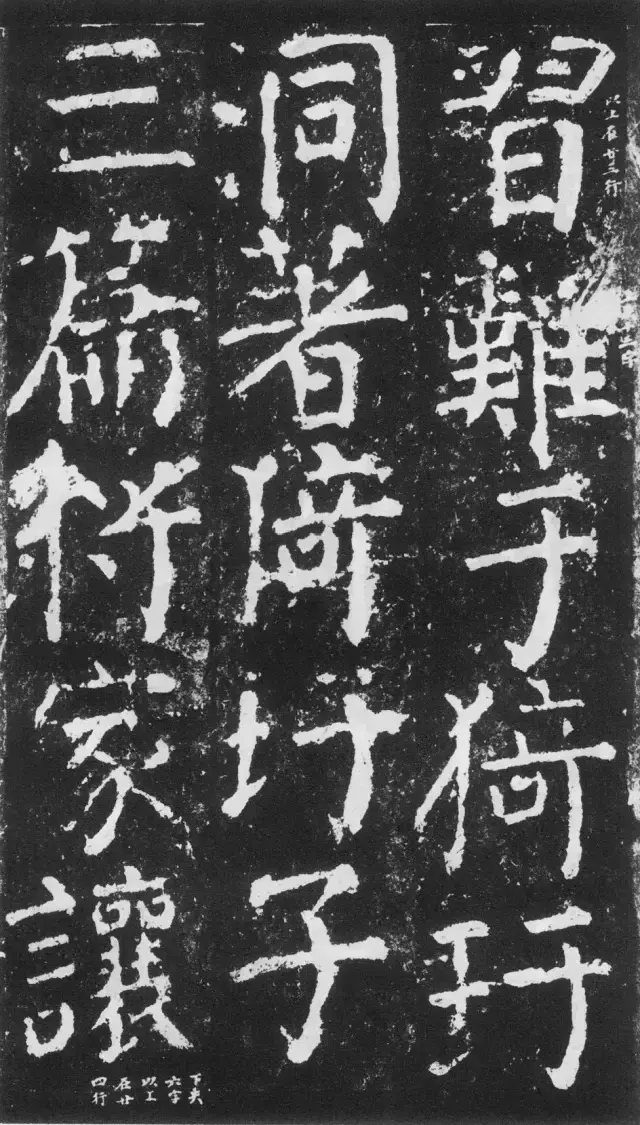 習難于猗玗
以上在廿三行
洞著倚圩子
三篇将家讓
六字
以上
在廿
四行